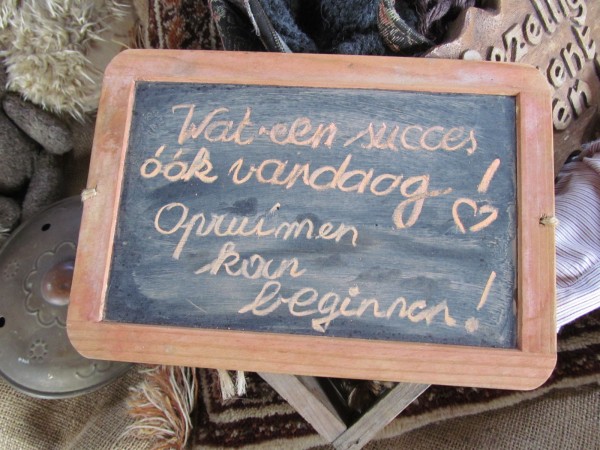 Wat een succes
óók vandaag! ♡
Opruimen
kan
beginnen!
gezellig
en